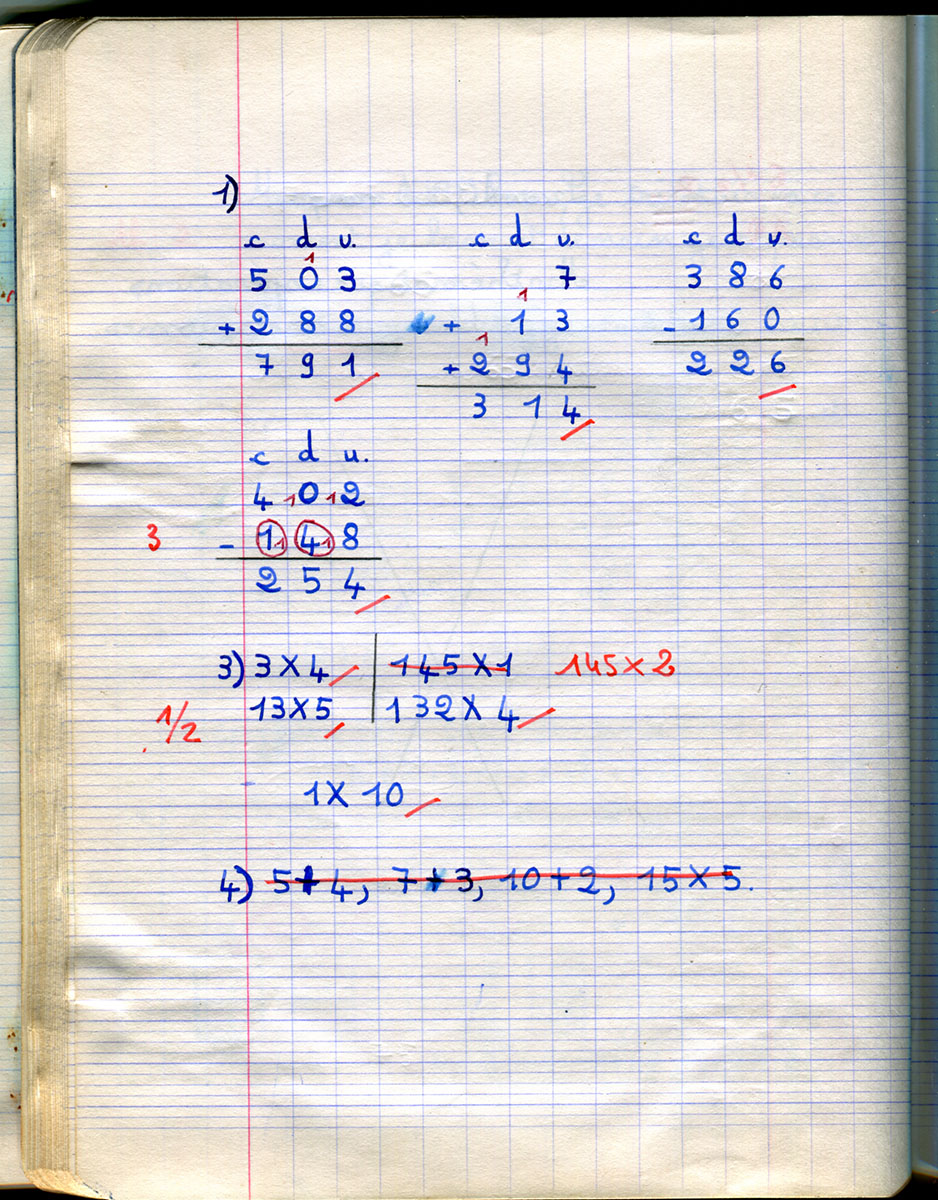 1)
c d u. c d u. c d u.
1
5 0 3 7 3 8 6
1
+ 2 8 8 + 1 3 - 1 6 0
1
7 9 1 + 2 9 4 2 2 6
3 1 4
c d u.
4 1 0 1 2
3 - 1 1 4 1 8
2 5 4
3) 3 X 4 145 X 1 145 x 2
1/2 13 X 5 132 X 4
1 X 10
4) 5 + 4, 7 + 3, 10 + 2, 15 X 5.